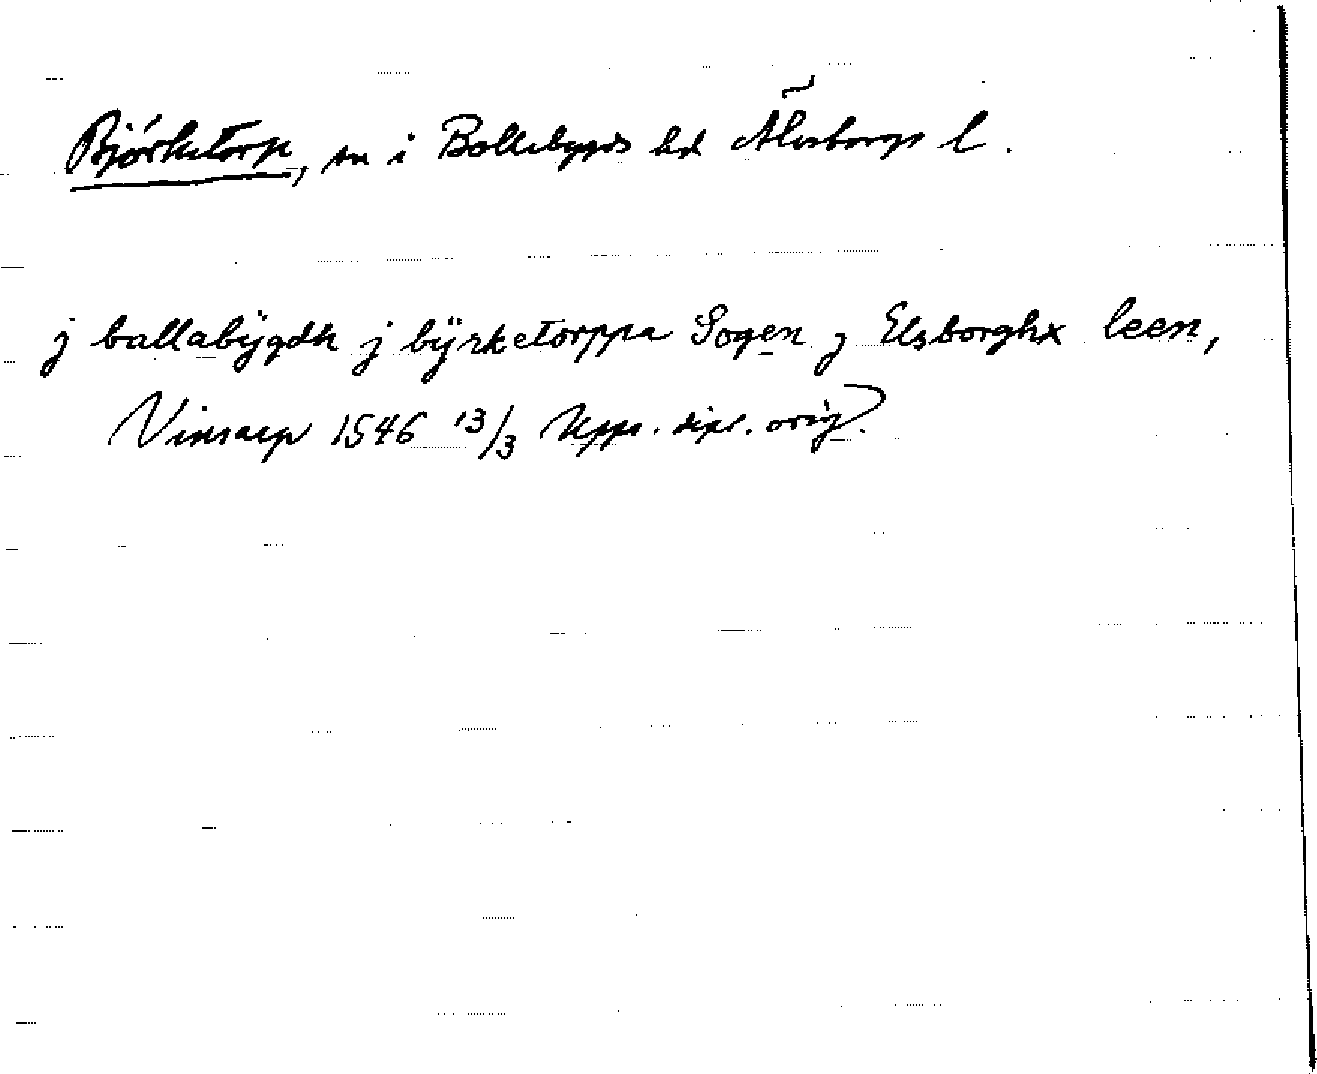 Björketorp, sn i Bollebygds hd Älvsborgs l.
j ballabÿgdh j bÿrketorppa Sogen j Elsborghx leen,
Vinsarp 1546 13/3 Upps. dipl. orig.